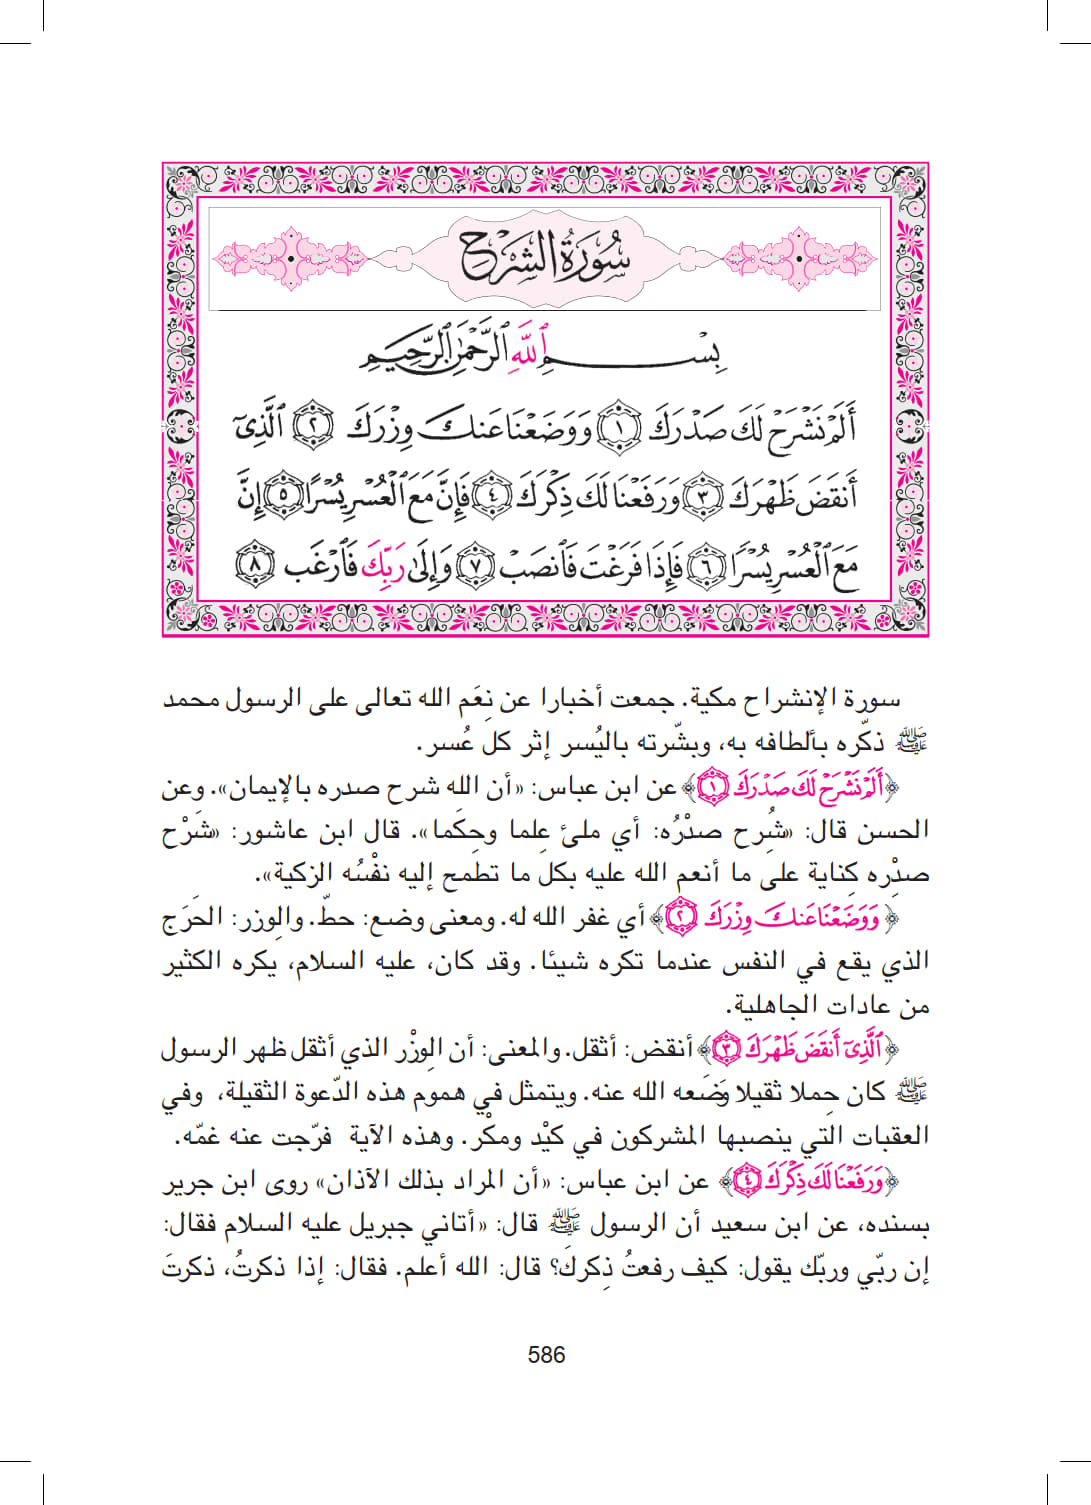 سُورَةُ الشَّرْحِ
بِسْمِ ٱللَّهِ ٱلرَّحْمَٰنِ ٱلرَّحِيمِ
أَلَمْ نَشْرَحْ لَكَ صَدْرَكَ ١ وَوَضَعْنَا عَنكَ وِزْرَكَ ٢ ٱلَّذِىٓ
أَنقَضَ ظَهْرَكَ ٣ وَرَفَعْنَا لَكَ ذِكْرَكَ ٤ فَإِنَّ مَعَ ٱلْعُسْرِ يُسْرًا ٥ إِنَّ
مَعَ ٱلْعُسْرِ يُسْرًا ٦ فَإِذَا فَرَغْتَ فَٱنصَبْ ٧ وَإِلَىٰ رَبِّكَ فَٱرْغَب ٨
سورة الإنشراح مكية. جمعت أخبارا عن نِعَم الله تعالى على الرسول محمد
ﷺ ذكّره بألطافه به، وبشّرته باليُسر إثر كل عُسر.
﴿أَلَمْ نَشْرَحْ لَكَ صَدْرَكَ ١﴾ عن ابن عباس: «أن الله شرح صدره بالإيمان». وعن
الحسن قال: «شُرِح صدْرُه: أي ملئ عِلما وحِكَما». قال ابن عاشور: «شَرْح
صدْرِه كِناية على ما أنعم الله عليه بكل ما تطمح إليه نفْسُه الزكية».
﴿وَوَضَعْنَا عَنكَ وِزْرَكَ ٢﴾ أي غفر الله له. ومعنى وضع: حطّ. والوِزر: الحَرَج
الذي يقع في النفس عندما تكره شيئا. وقد كان، عليه السلام، يكره الكثير
من عادات الجاهلية.
﴿ٱلَّذِىٓ أَنقَضَ ظَهْرَكَ ٣﴾ أنقض: أثقل. والمعنى: أن الوِزْر الذي أثقل ظهر الرسول
ﷺ كان حِملا ثقيلا وَضَعه الله عنه. ويتمثل في هموم هذه الدّعوة الثقيلة، وفي
العقبات التي ينصبها المشركون في كيْد ومكْر. وهذه الآية فرّجت عنه غمّه.
﴿وَرَفَعْنَا لَكَ ذِكْرَكَ ٤﴾ عن ابن عباس: «أن المراد بذلك الآذان» روى ابن جرير
بسنده، عن ابن سعيد أن الرسول ﷺ قال: «أتاني جبريل عليه السلام فقال:
إن ربّي وربّك يقول: كيف رفعتُ ذِكركَ؟ قال: الله أعلم. فقال: إذا ذكرتُ، ذكرتَ
586